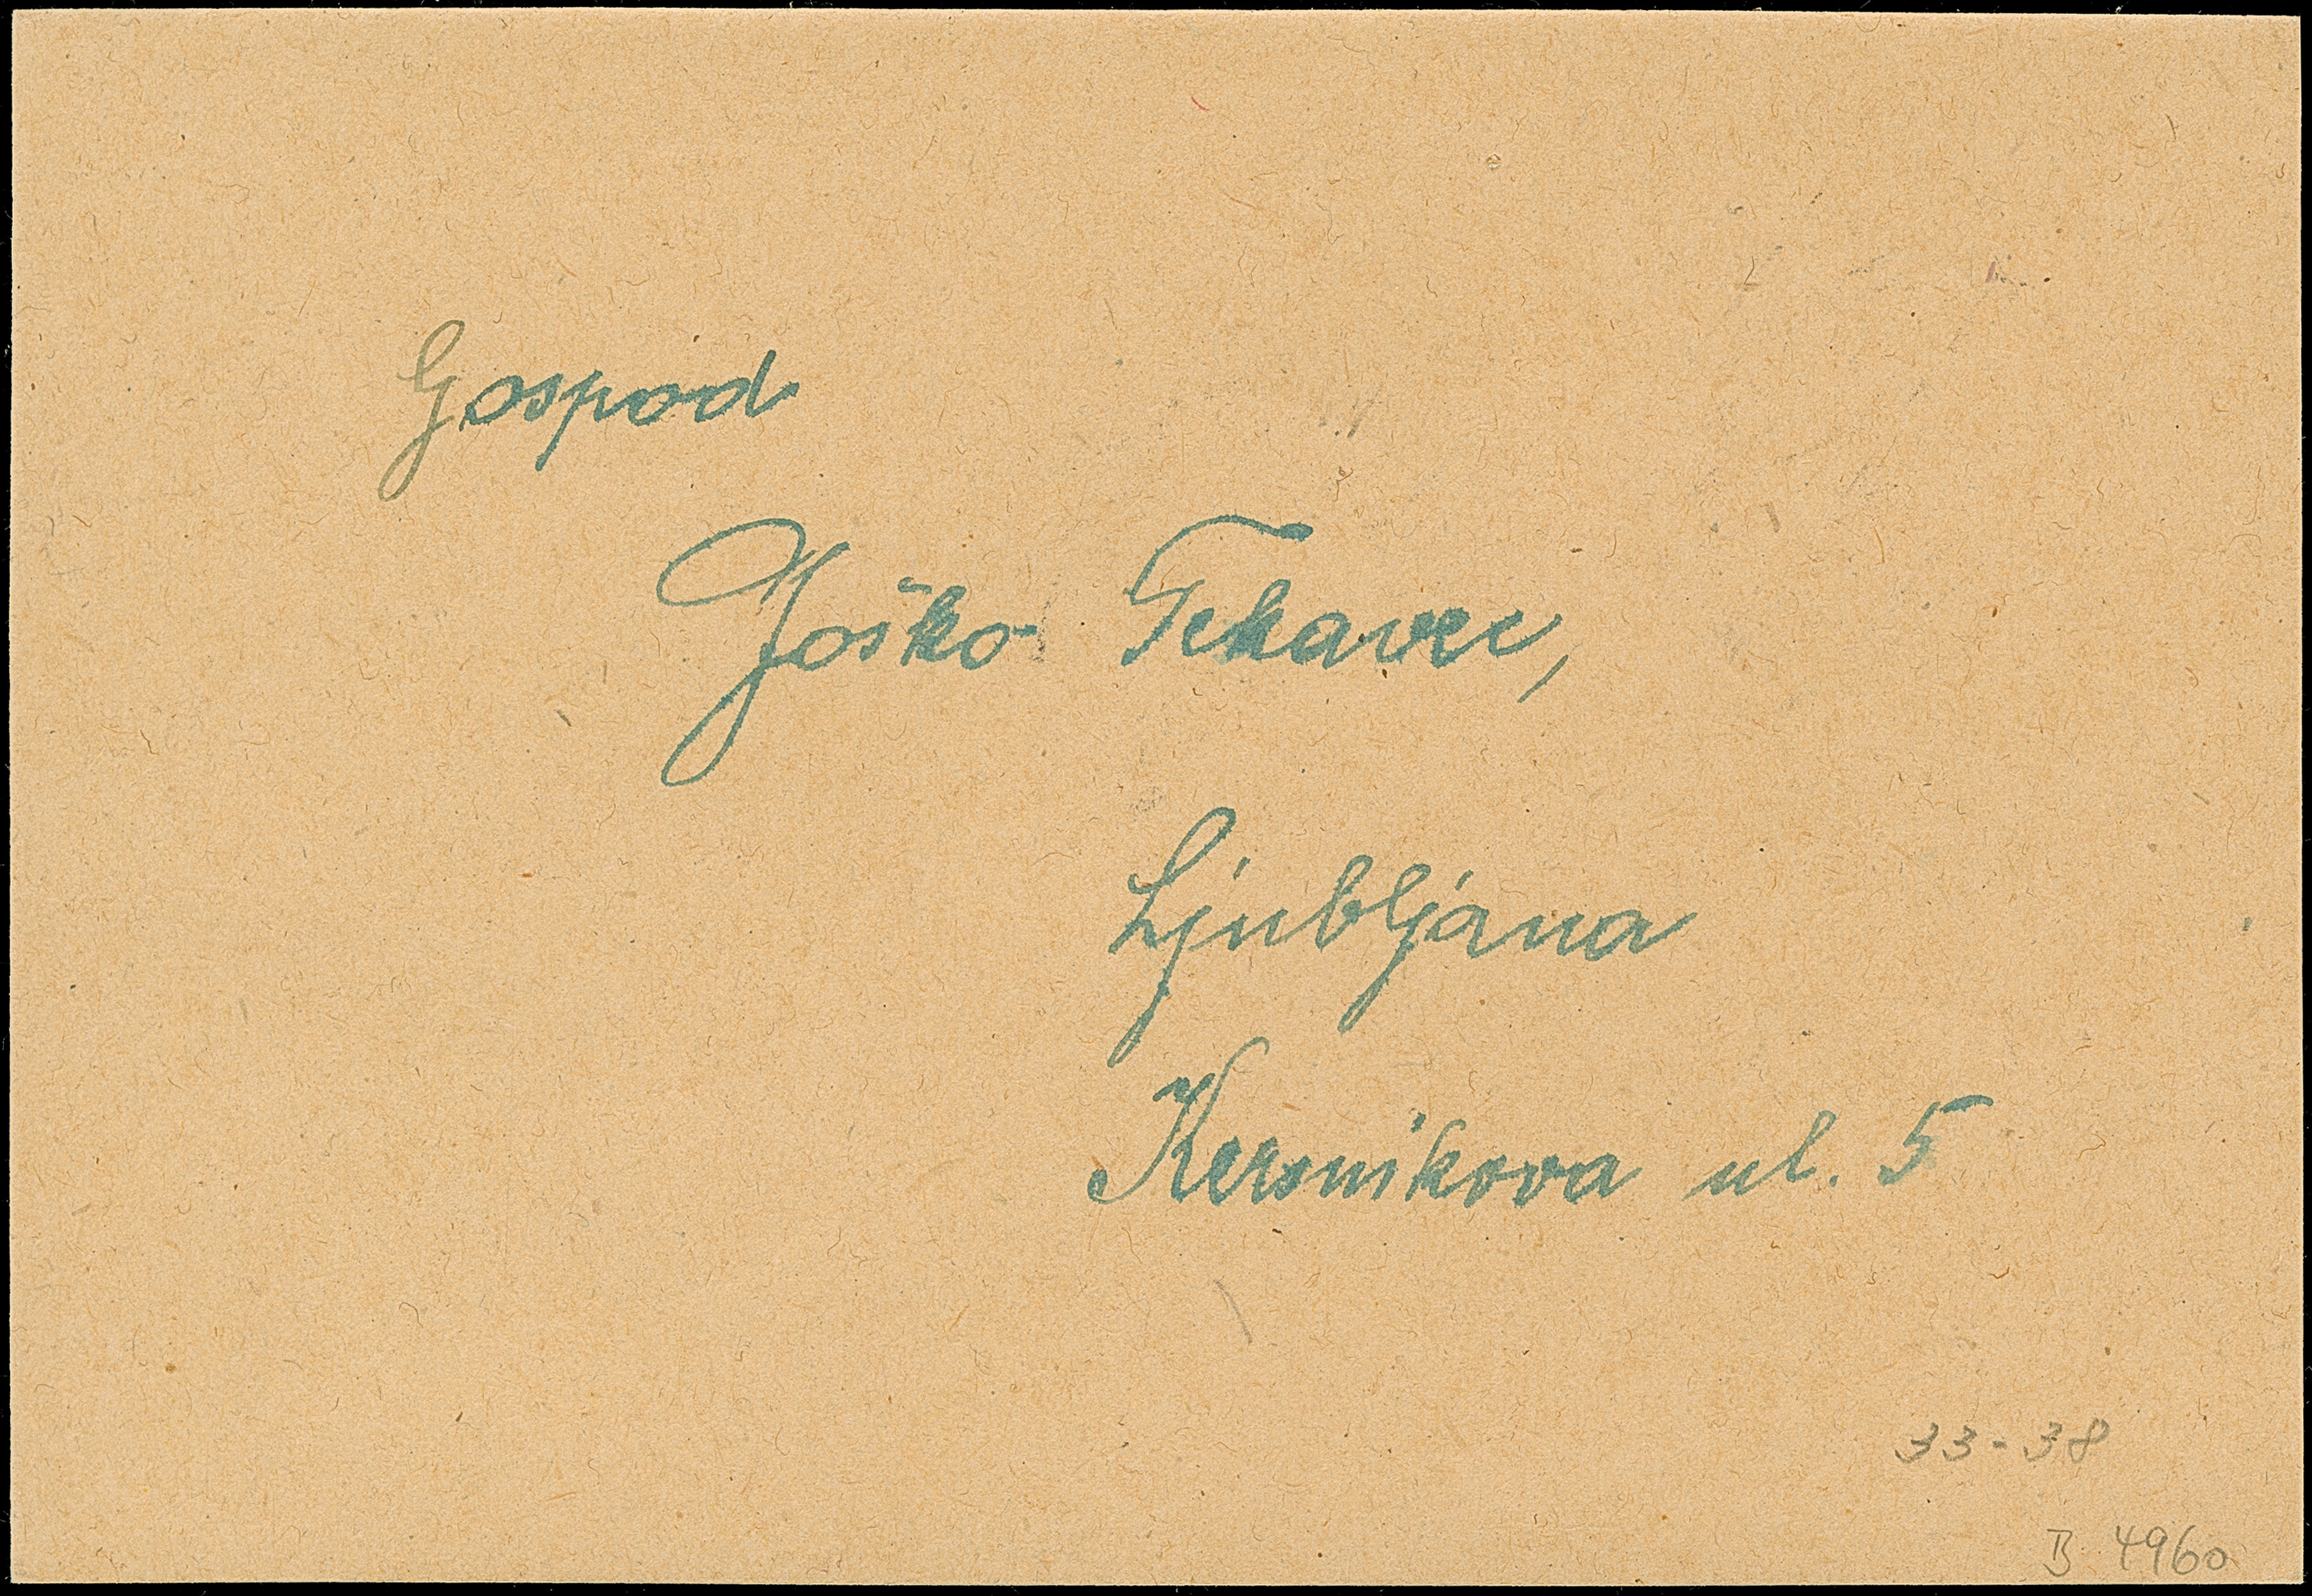 Gospod
Joško Tekavec,
Ljubljana
Kersnikova ul. 5
33-38
B 4960